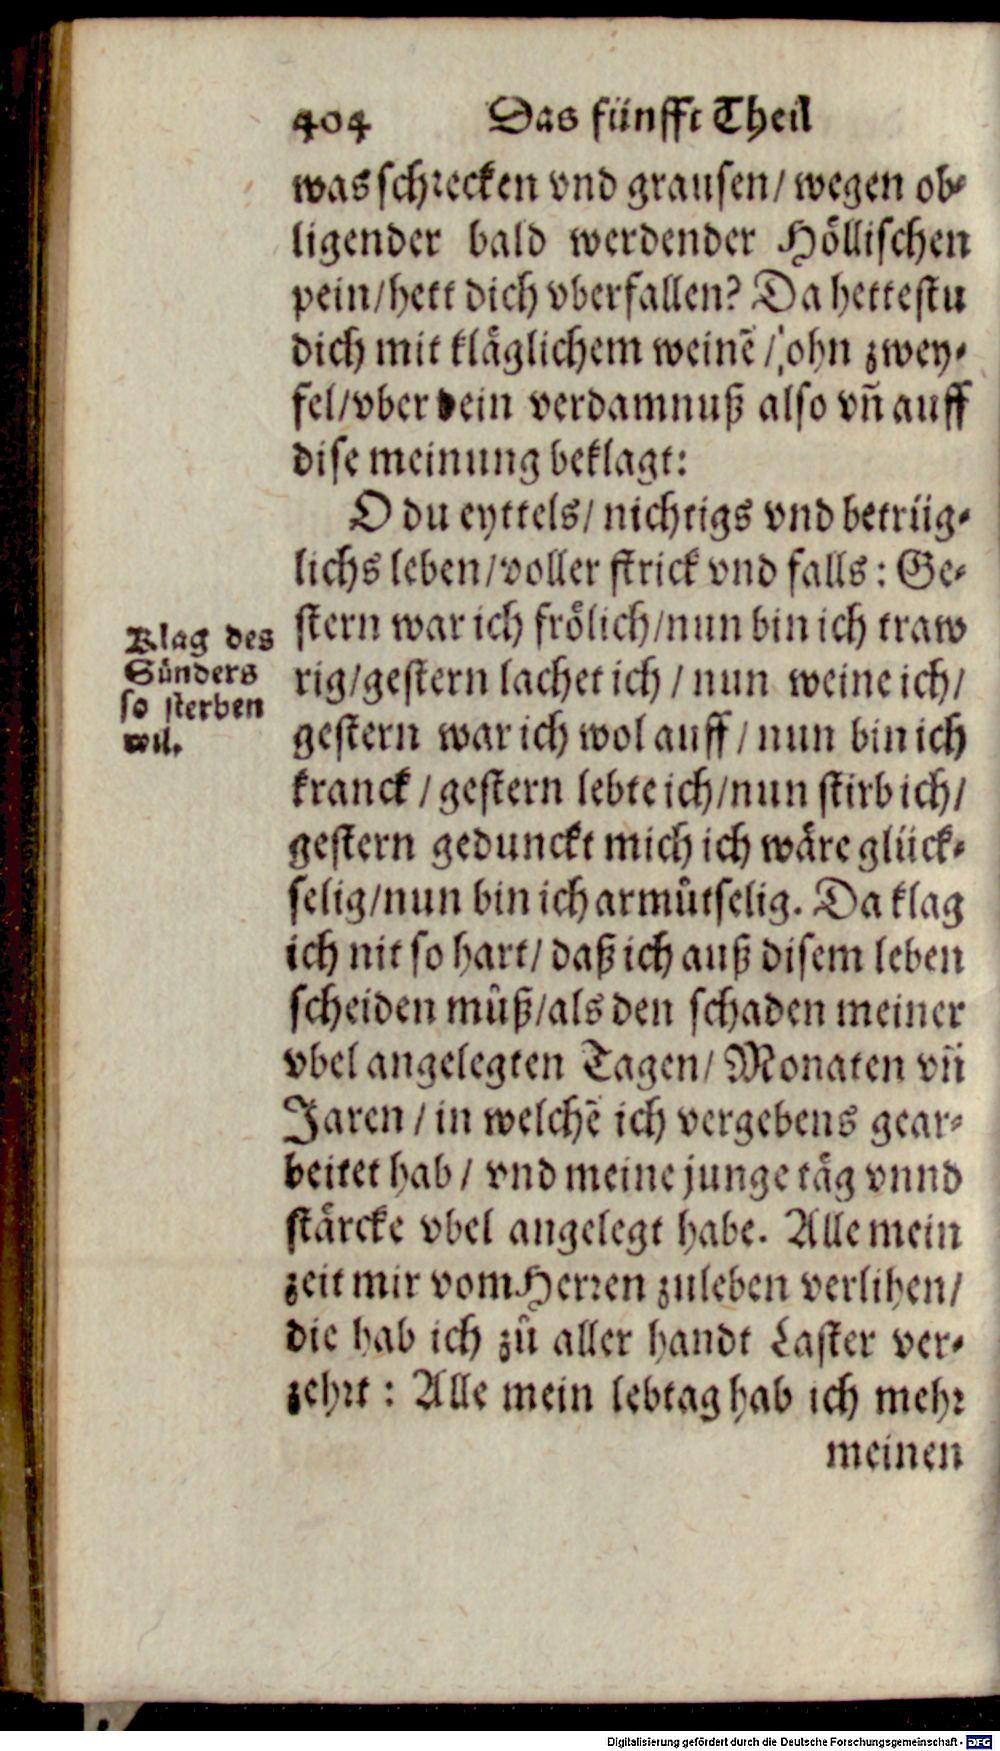 404 Das fünfft Theil
was schrecken vnd grausen/ wegen ob-
ligender bald werdender Höllischen
pein/hett dich vberfallen? Da hettestu
dich mit kläglichem weinē / ohn zwey-
fel/vber dein verdamnuß also vñ auff
dise meinung beklagt:
O du eyttels/ nichtigs vnd betrüg-
lichs leben/voller strick vnd falls: Ge-
stern war ich frölich/nun bin ich traw
rig/gestern lachet ich / nun weine ich/
gestern war ich wol auff / nun bin ich
kranck / gestern lebte ich/nun stirb ich/
gestern gedunckt mich ich wäre glück-
selig/nun bin ich armůtselig. Da klag
ich nit so hart/ daß ich auß disem leben
scheiden můß/als den schaden meiner
vbel angelegten Tagen/ Monaten vñ
Jaren / in welchē ich vergebens gear-
beitet hab / vnd meine junge täg vnnd
stärcke vbel angelegt habe. Alle mein
zeit mir vom Herren zuleben verlihen/
die hab ich zů aller handt Laster ver-
zehrt : Alle mein lebtag hab ich mehr
meinen
Klag des
Sünders
so sterben
wil.
Digitalisierung gefördert durch die Deutsche Forschungsgemeinschaft - DFG